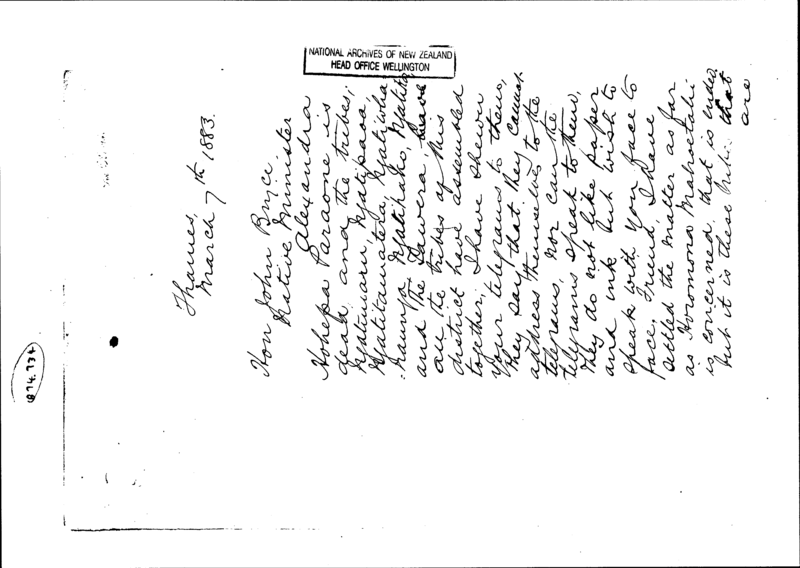 NATIONAL ARCHIVES OF NEW ZEALAND
HEAD OFFICE WELLINGTON
Thames,
March 7th 1883.
Hon John Bryce
Native Minister
Alexandra
Hohepa Paraone is
dead and the tribes;
Ngatimaru, Ngatipaoa,
Ngatitamatera, Ngatiwha
:naunga Ngatihako,
and the Tawera, have
all the tribes of this
district have assembled
together. I have shewn
your telegrams to them,
they say that they cannot
address themselves to the
telegrams, nor can the
telegrams speak to them,
they do not like paper
and ink but wish to
speak with your face to
face. Friend, I have
settled the matter as far
as Horomona
is concerned that is ended
but it is these that
are